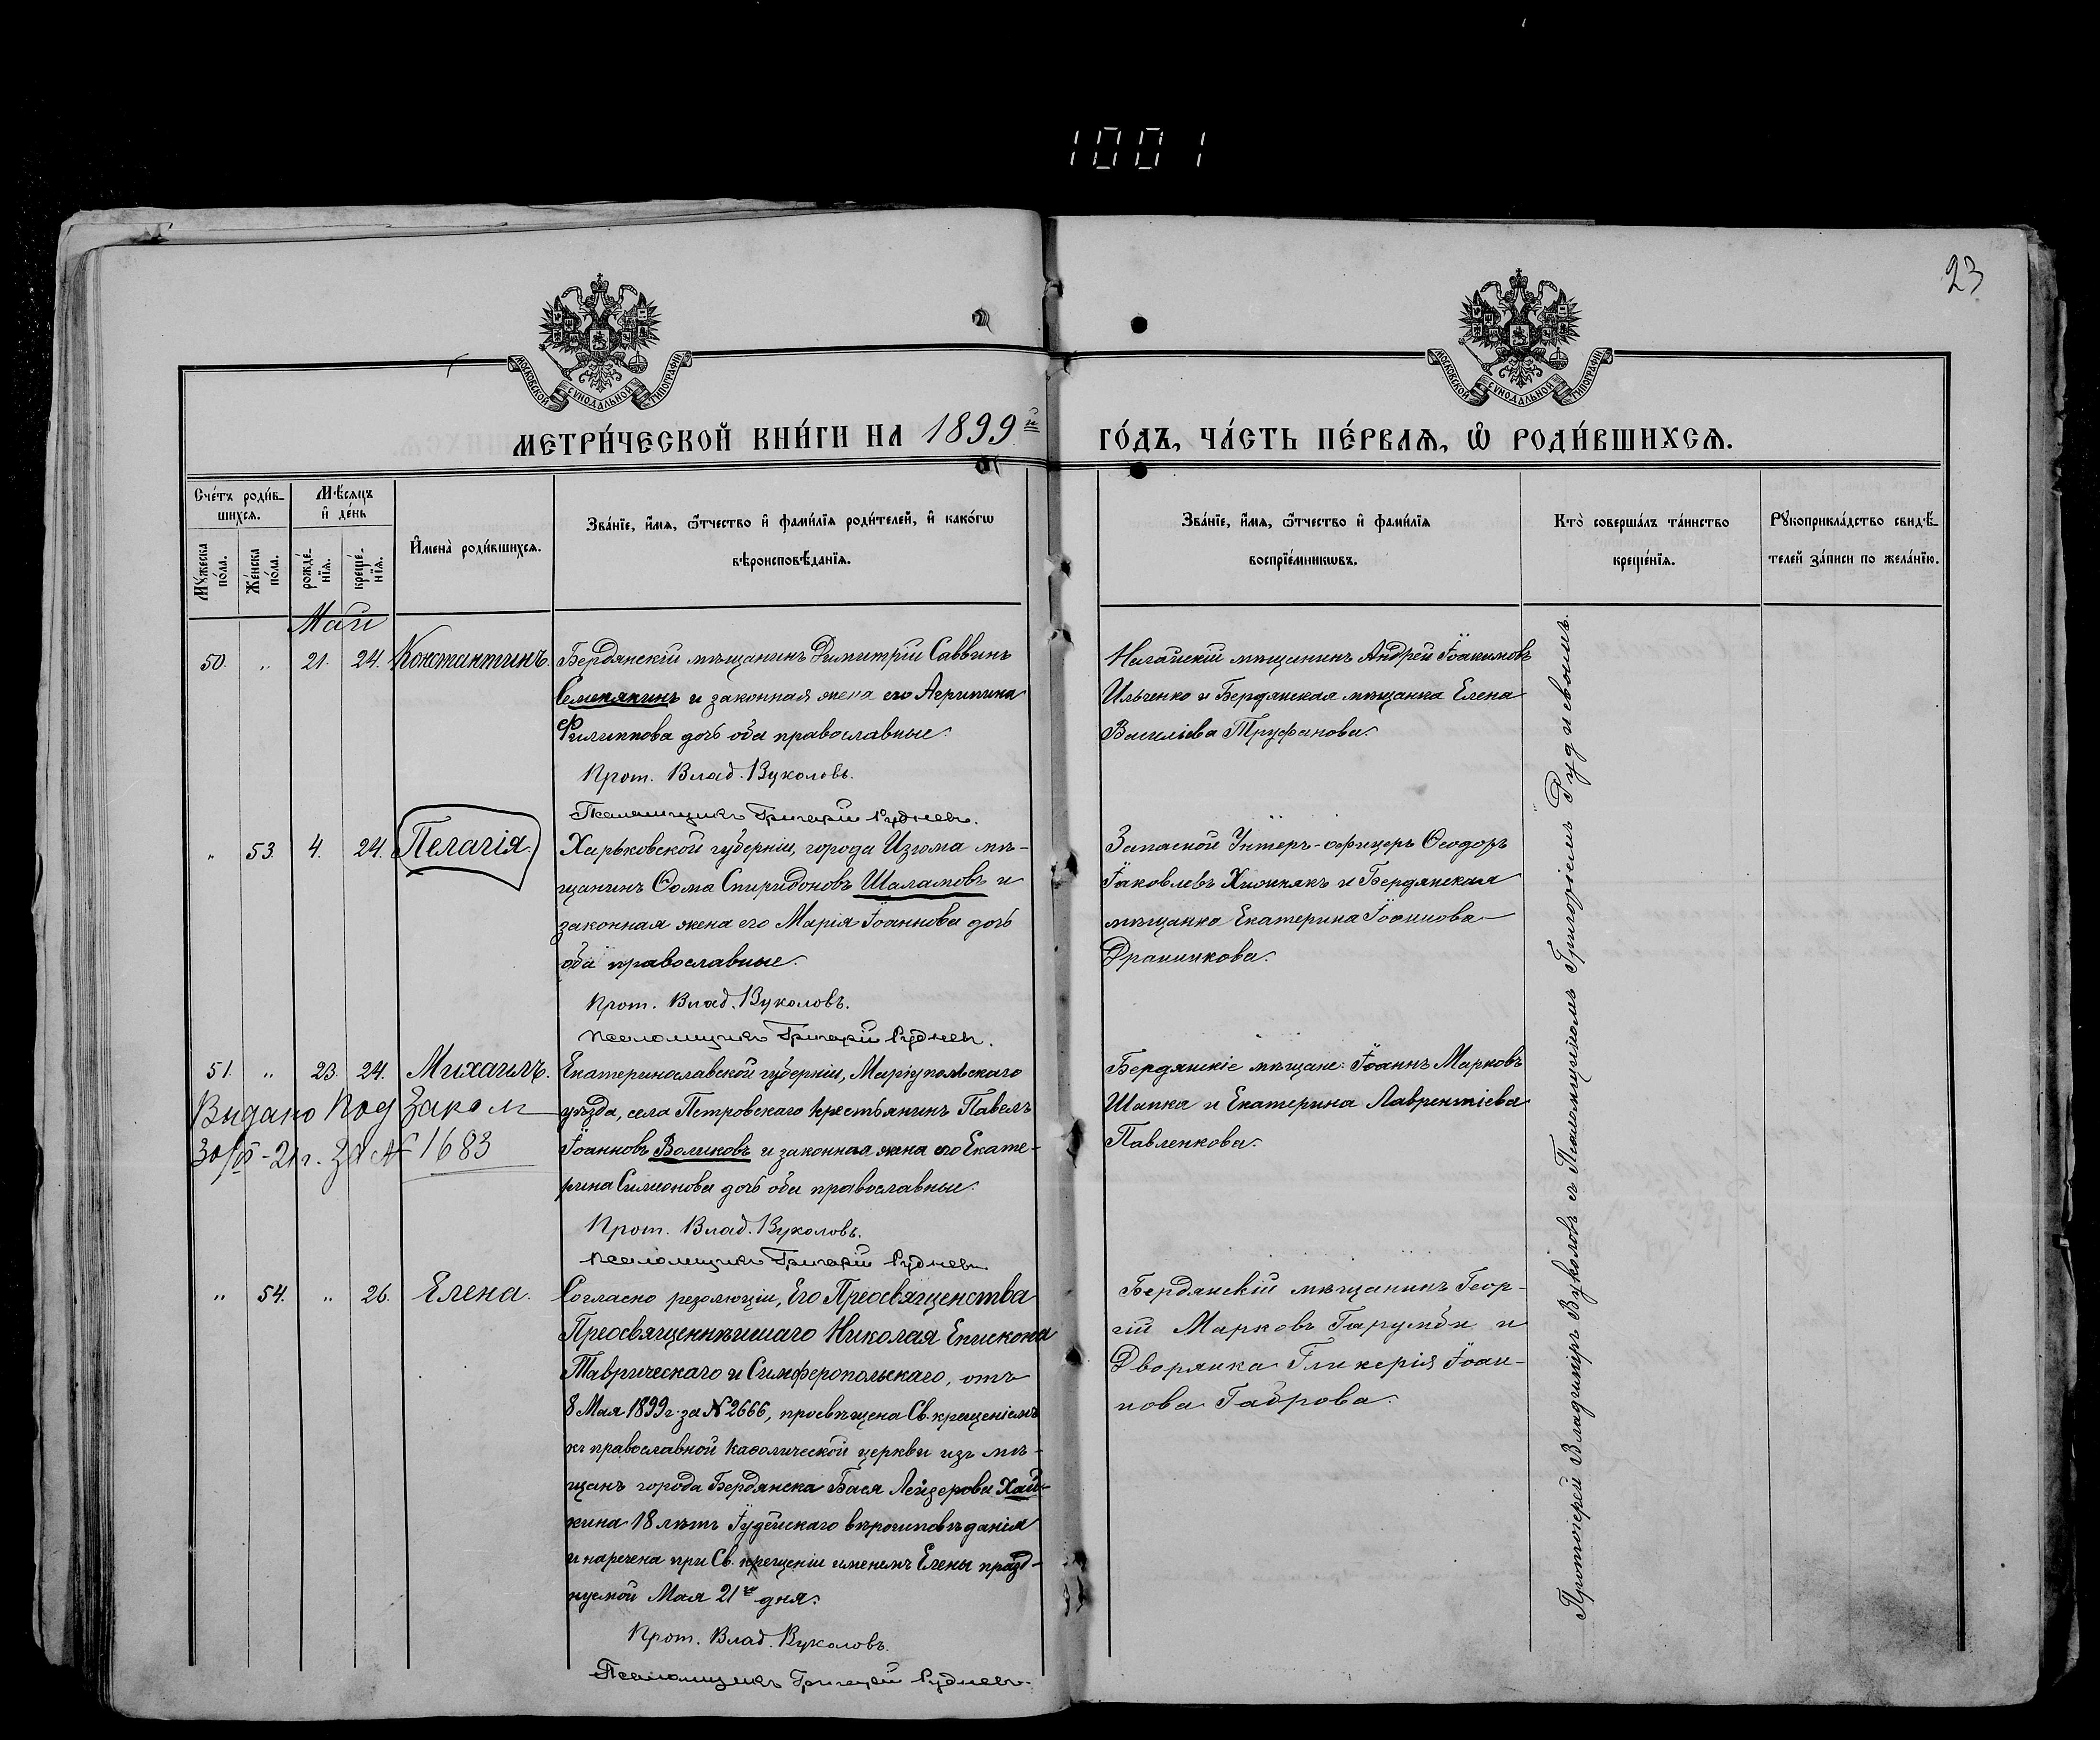 1001
23
МОСКОВСКОЙ СѴНОДАЛЬНОЙ ТИПОГРАФІИ
МОСКОВСКОЙ СѴНОДАЛЬНОЙ ТИПОГРАФІИ
МЕТРИ́ЧЕСКОЙ КНИ́ГИ НА 1899й ГО́ДЪ, ЧА́СТЬ ПЕ́РВАѦ, Ѽ РОДИ́ВШИХСѦ.
Сче́тъ роди́в-
шихсѧ.
Мѣ́сѧцъ
и҆ де́нь
Мꙋ́жеска по́ла.
Же́нска по́ла.
рожде́-
нїѧ.
креще́-
нїѧ.
И҆мена̀ роди́вшихсѧ.
Зва́нїе, и҆́мѧ, ѻ҆́тчество и҆ фами́лїѧ роди́телей, и҆ како́гѡ
вѣроисповѣ́данїѧ.
Зва́нїе, и҆́мѧ, ѻ҆́тчество и҆ фами́лїѧ
воспрїе́мникѡвъ.
Кто̀ соверша́лъ та́инство
креще́нїѧ.
Рꙋкоприкла́дство свидѣ́-
телей за́писи по жела́нїю.
Май
50. „ 21. 24. Константинъ.
Бердянскій мѣщанинъ Димитрій Саввинъ
Семенякинъ и законная жена его Агрипина
Филиппова дочь оба православные.
Прот. Влад. Вуколовъ.
Псаломщикъ Григорій Рудневъ.
Нагайскій мѣщанинъ Андрей Іоакимовъ
Ильченко и Бердянская мѣщанка Елена
Василіева Труфанова.
„ 53. 4. 24. Пелагія.
Харьковской губерніи, города Изюма мѣ-
щанинъ Ѳома Спиридоновъ Шаламовъ и
законная жена его Марія Іоаннова дочь
оба православные.
Прот. Влад. Вуколовъ.
Псаломщикъ Григорій Рудневъ.
Запасной Унтеръ-офицеръ Ѳеодоръ
Іаковлевъ Хижнякъ и Бердянская
мѣщанка Екатерина Іоаннова
51. „ 23. 24. Михаилъ.
Выдано под Закон
30/ - 21г. За № 1683
Екатеринославской губерніи, Маріупольскаго
уѣзда, села Петровскаго крестьянинъ Павелъ
Іоанновъ Воликовъ и законная жена его Екате-
рина Симеонова дочь оба православные.
Прот. Влад. Вуколовъ.
Псаломщикъ Григорій Рудневъ
Бердянскіе мѣщане: Іоаннъ Марковъ
Шапка и Екатерина Лаврентіева
Павленкова.
„ 54. „ 26. Елена.
Согласно резолюціи, Его Преосвященства
Преосвященнѣйшаго Николая Епископа
Таврическаго и Симферопольскаго, отъ
8 Мая 1899 г. за № 2666, просвѣщена Св. крещеніемъ
къ православной каѳолической церкви изъ мѣ-
щанъ города Бердянска Бася Лейзерова Хай-
кина 18 лѣтъ Іудейскаго вѣроисповѣданія
и наречена при Св. крещеніи именемъ Елены празд-
нуемой Мая 21го дня.
Прот. Влад. Вуколовъ.
Псаломщикъ Григорій Рудневъ.
Бердянскій мѣщанинъ Геор-
гій Марковъ и
Дворянка Гликерія Іоан-
нова Гаврова.
Протоіерей Владиміръ Вуколовъ съ Псаломщикомъ Григоріемъ Рудневымъ.